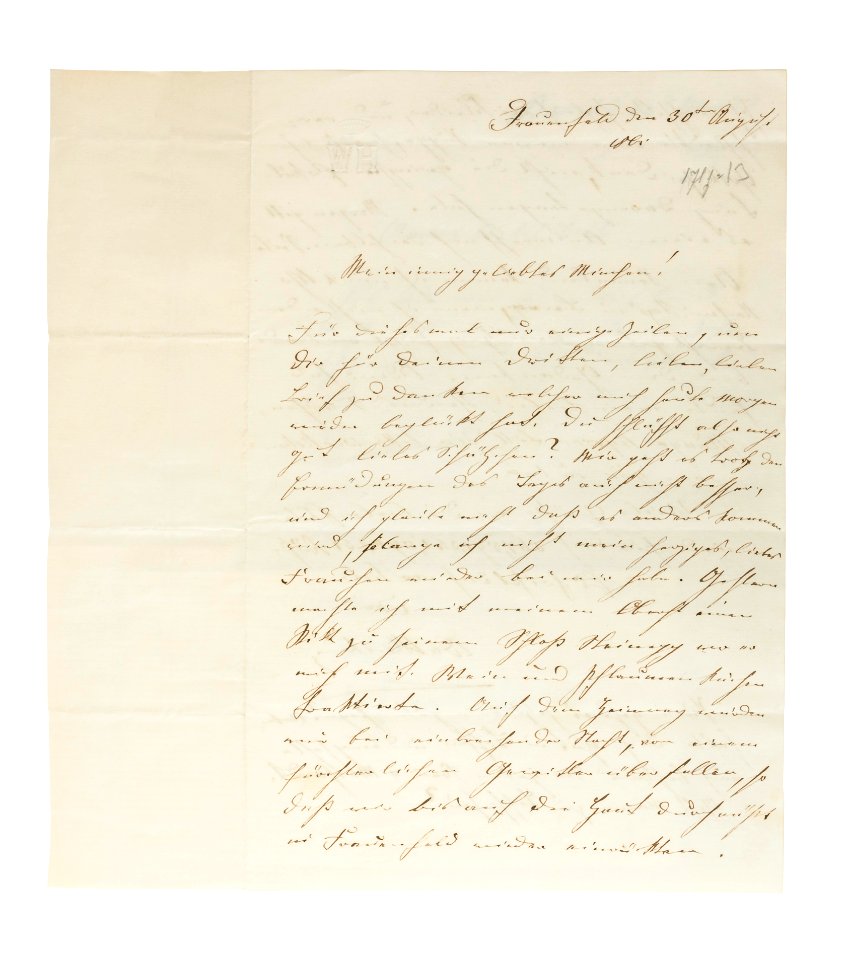 Frauenfeld den 30ten August
1861
Mein innig geliebtes Minchen!
Für dießmal nur einige Zeilen, um
Dir für Deinen dritten, lieben, lieben
Brief zu danken welcher mich heute Morgen
wieder beglückt hat. Du schläfst also nicht
gut liebes Schätzchen? Mir geht es trotz den
Ermüdungen des Tages auch nicht besser,
und ich glaube nicht daß es anders kommen
wird, solange ich nicht mein herziges, liebes
Frauchen wieder bei mir habe. Gestern
machte ich mit meinem Oberst einen
Ritt zu seinem Schloß Steinegg wo er
mich mit Wein und Pflaumen Kuchen
traktierte. Auf dem Heimweg wurden
wir bei einbrechender Nacht, von einem
fürchterlichen Gewitter überfallen, so
daß wir bis auf die Haut durchnäßt
in Frauenfeld wieder einrückten.